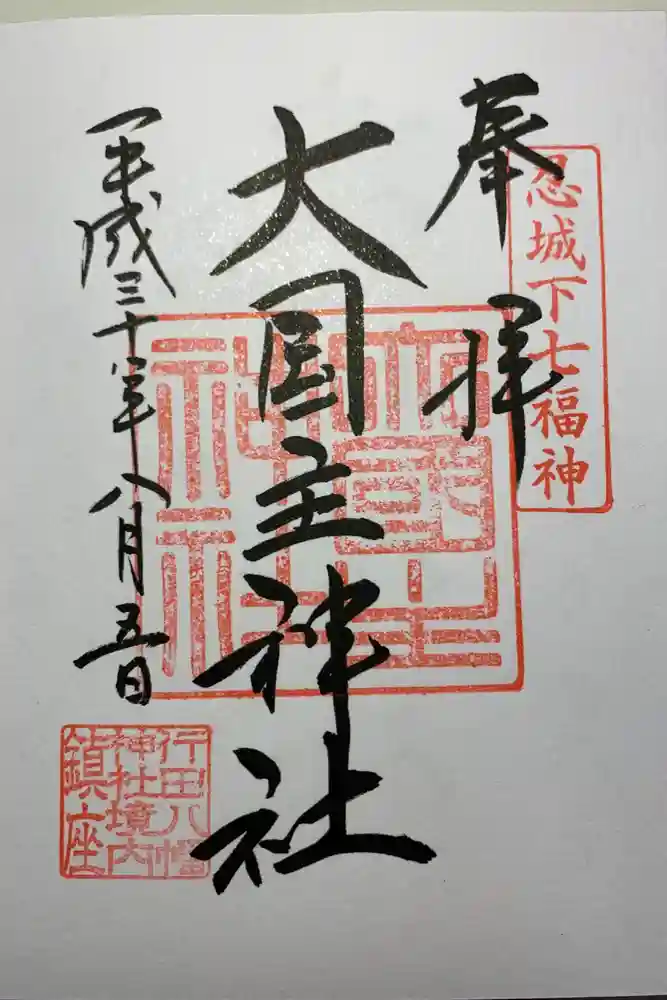 奉拝
忍城下七福神
大国主神社
大國主
神社
平成三十年八月五日
行田八幡
神社境内
鎮座